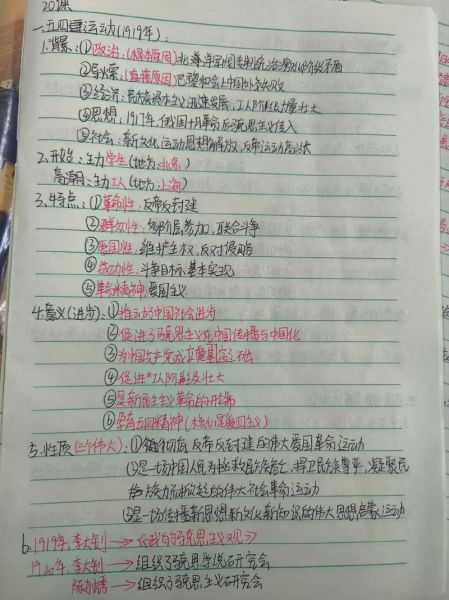 20课
一、五四运动(1919年):
1.背景:①政治:(根本原因)北洋军阀专制统治激化阶级矛盾
②导火索:(直接原因)巴黎和会上中国外交失败
③经济:民族资本主义迅速发展,工人阶级力量壮大
④思想:1917年,俄国十月革命后马克思主义传入
⑤社会:新文化运动思想解放,反帝运动高涨
2.开始:主力学生(地方:北京)
高潮:主力工人(地方:上海)
3.特点:①革命性:反帝反封建
②群众性:各阶层参加,联合斗争
③爱国性:维护主权,反对侵略
④成功性:斗争目标,基本实现
⑤革命精神:爱国主义
4.意义(进步):①推动了中国社会进步
②促进了马克思主义在中国传播与中国化
③为中国共产党成立奠定了基础
④促进工人阶级壮大
⑤是新民主主义革命的开端
⑥孕育五四精神(核心是爱国主义)
5.性质(三个伟大):①彻底反帝反封建的伟大爱国革命运动
②是一场中国人民为拯救民族危亡、捍卫民族尊严、凝聚民
族力而掀起的伟大社会革命运动
③是一场传播新思想新文化新知识的伟大思想启蒙运动
6.1919年,李大钊→《我的马克思主义观》
1920年,李大钊→组织马克思学说研究会
陈独秀→组织马克思主义研究会